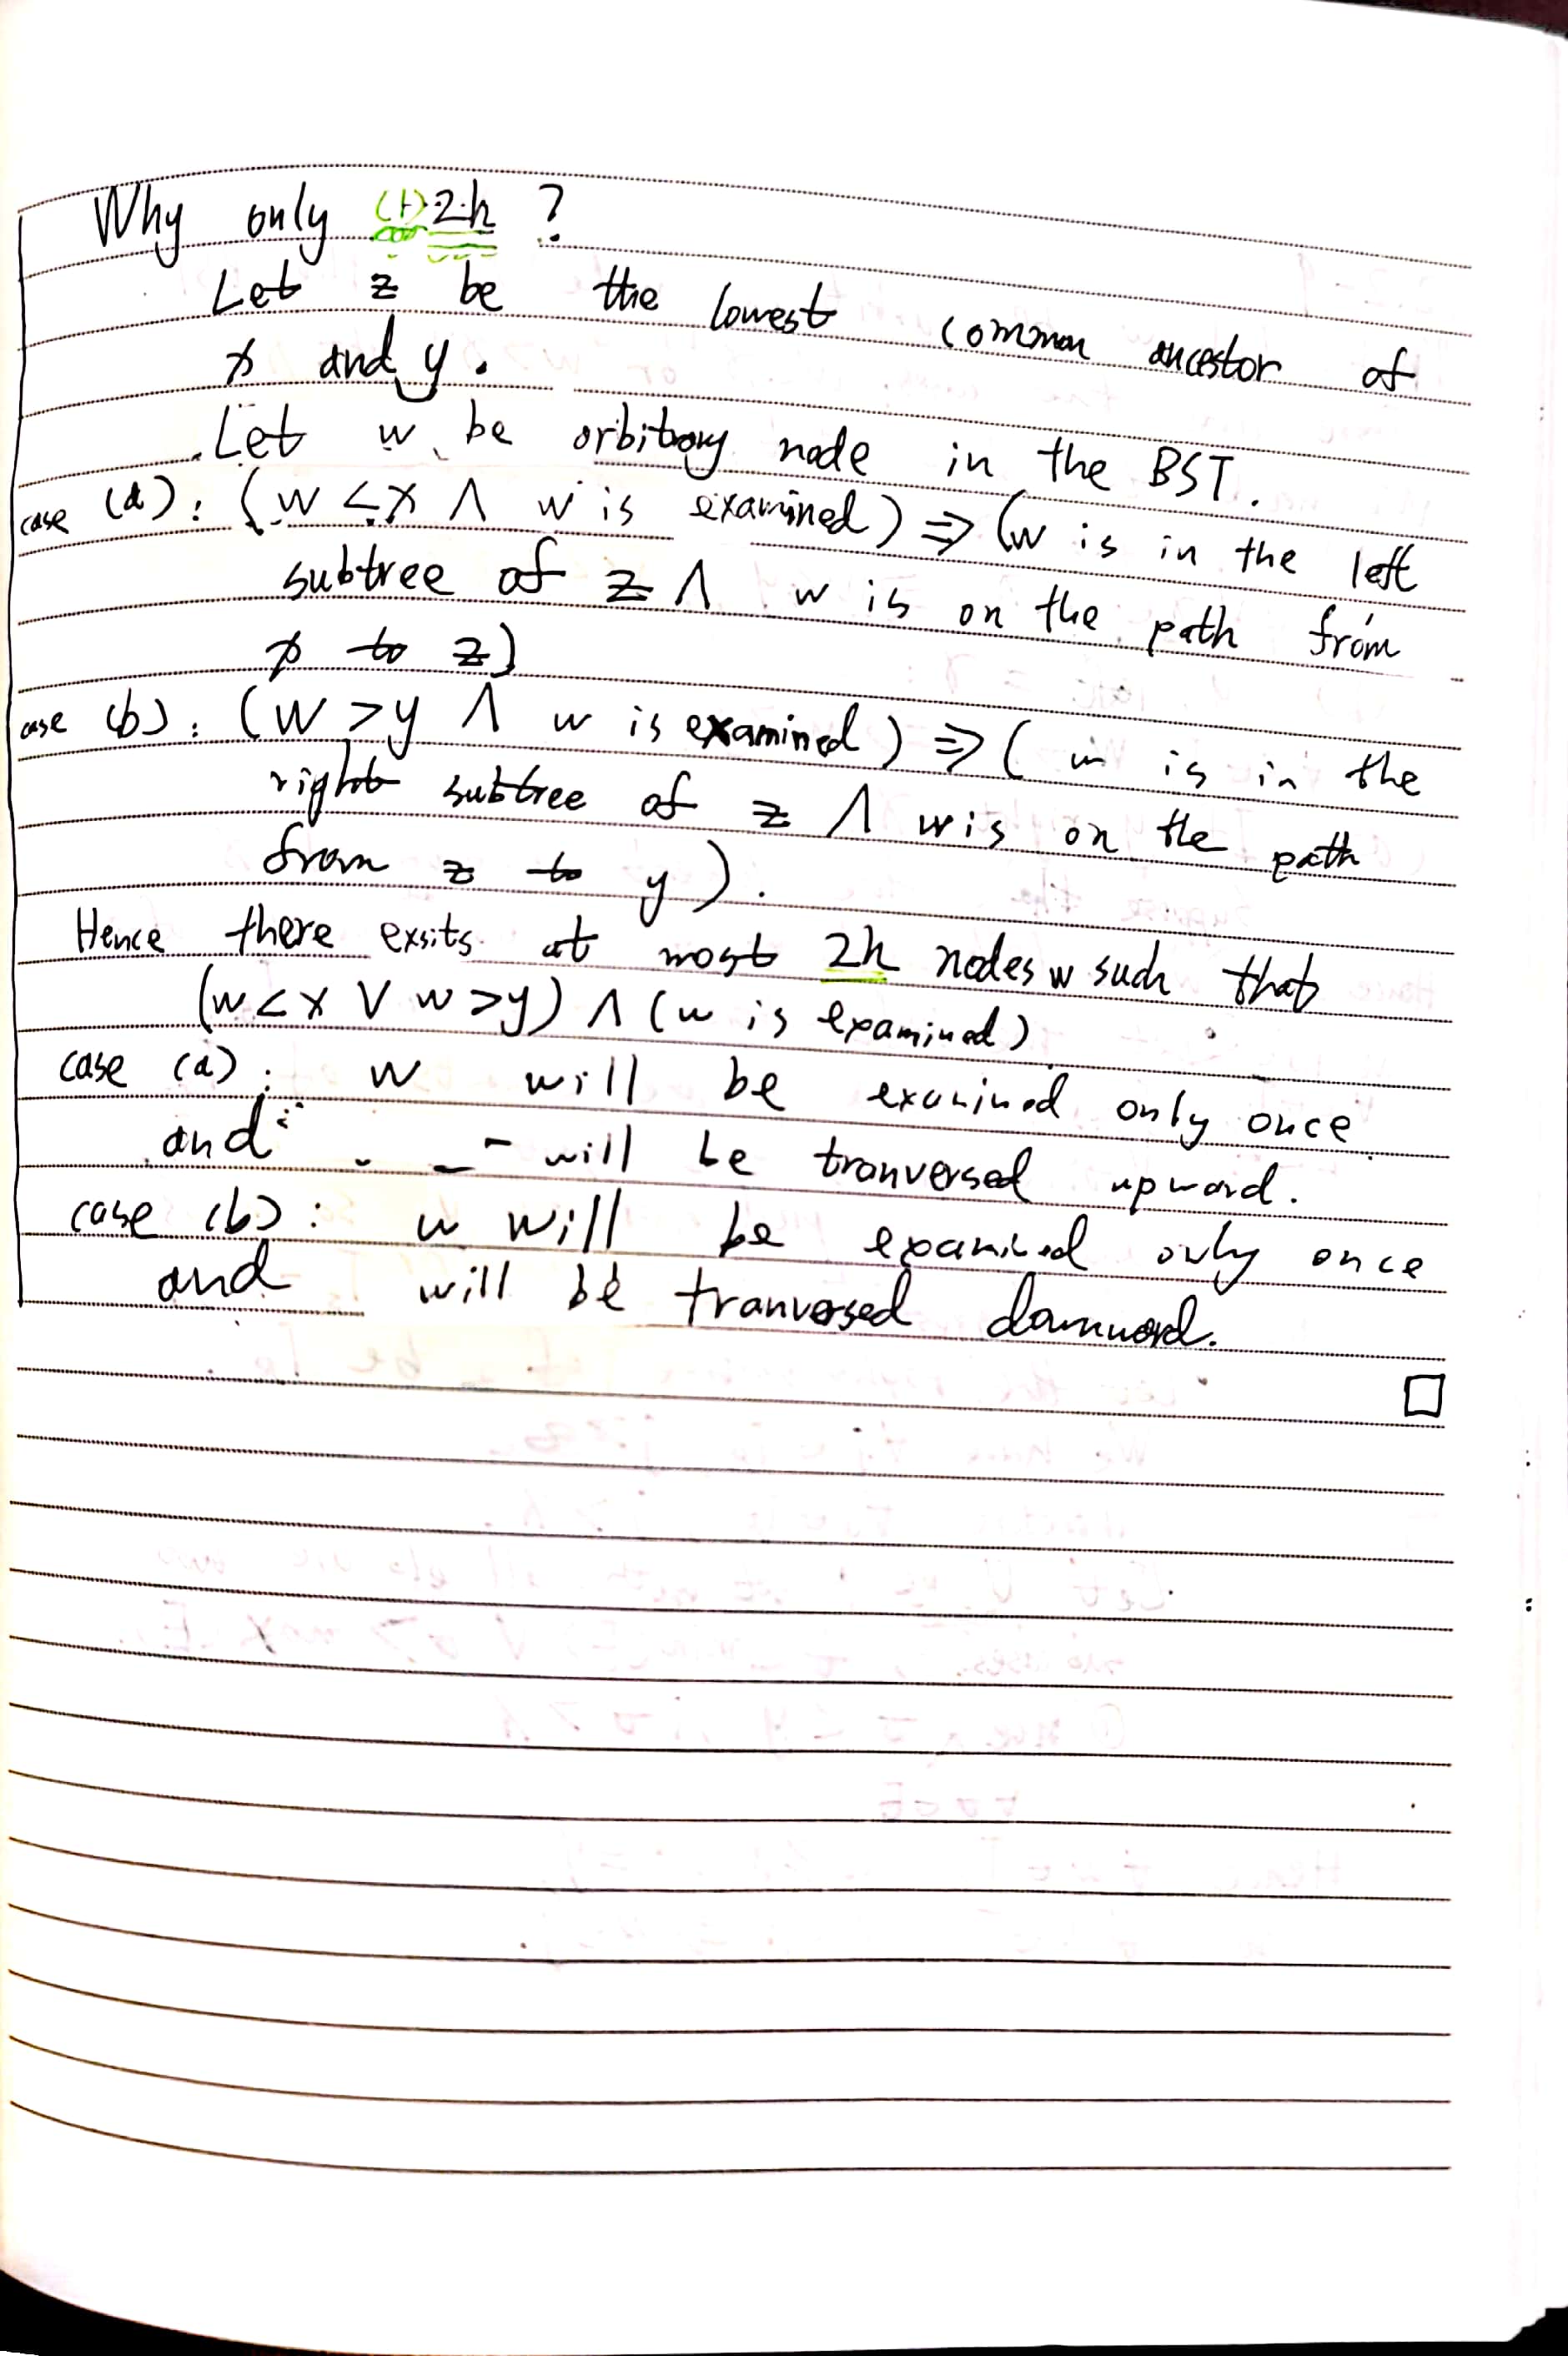 Why only (1) 2h ?
Let z be the lowest common ancestor of
x and y.
Let w be orbitrary node in the BST.
case (a): (w < x ∧ w is examined) ⇒ (w is in the left
subtree of z ∧ w is on the path from
x to z)
case (b): (w > y ∧ w is examined) ⇒ ( w is in the
right subtree of z ∧ w is on the path
from z to y).
Hence there exsits at most 2h nodes w such that
(w < x ∨ w > y) ∧ (w is examined)
case (a): w will be examined only once
and will be tranversed upward.
case (b): w will be examined only once
and will be tranversed downward.
□